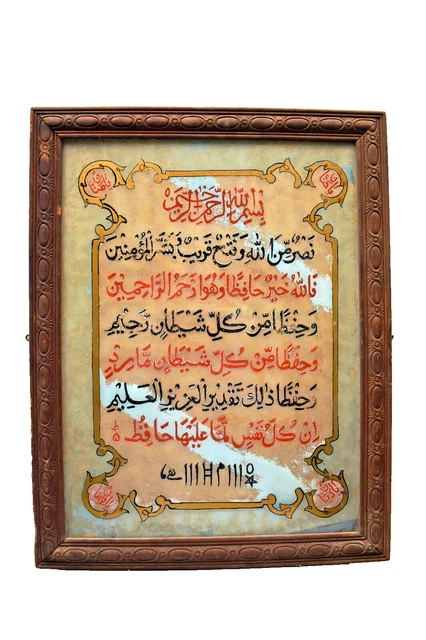 بسم الله الرحمن الرحيم
نصر من الله وفتح قريب وبشر المؤمنين
فالله خير حافظا وهو ارحم الراحمين
وحفظا من كل شيطان رجيم
وحفظا من كل شيطان مارد
وحفظا ذلك تقدير العزيز العليم
ان كل نفس لما عليها حافظ